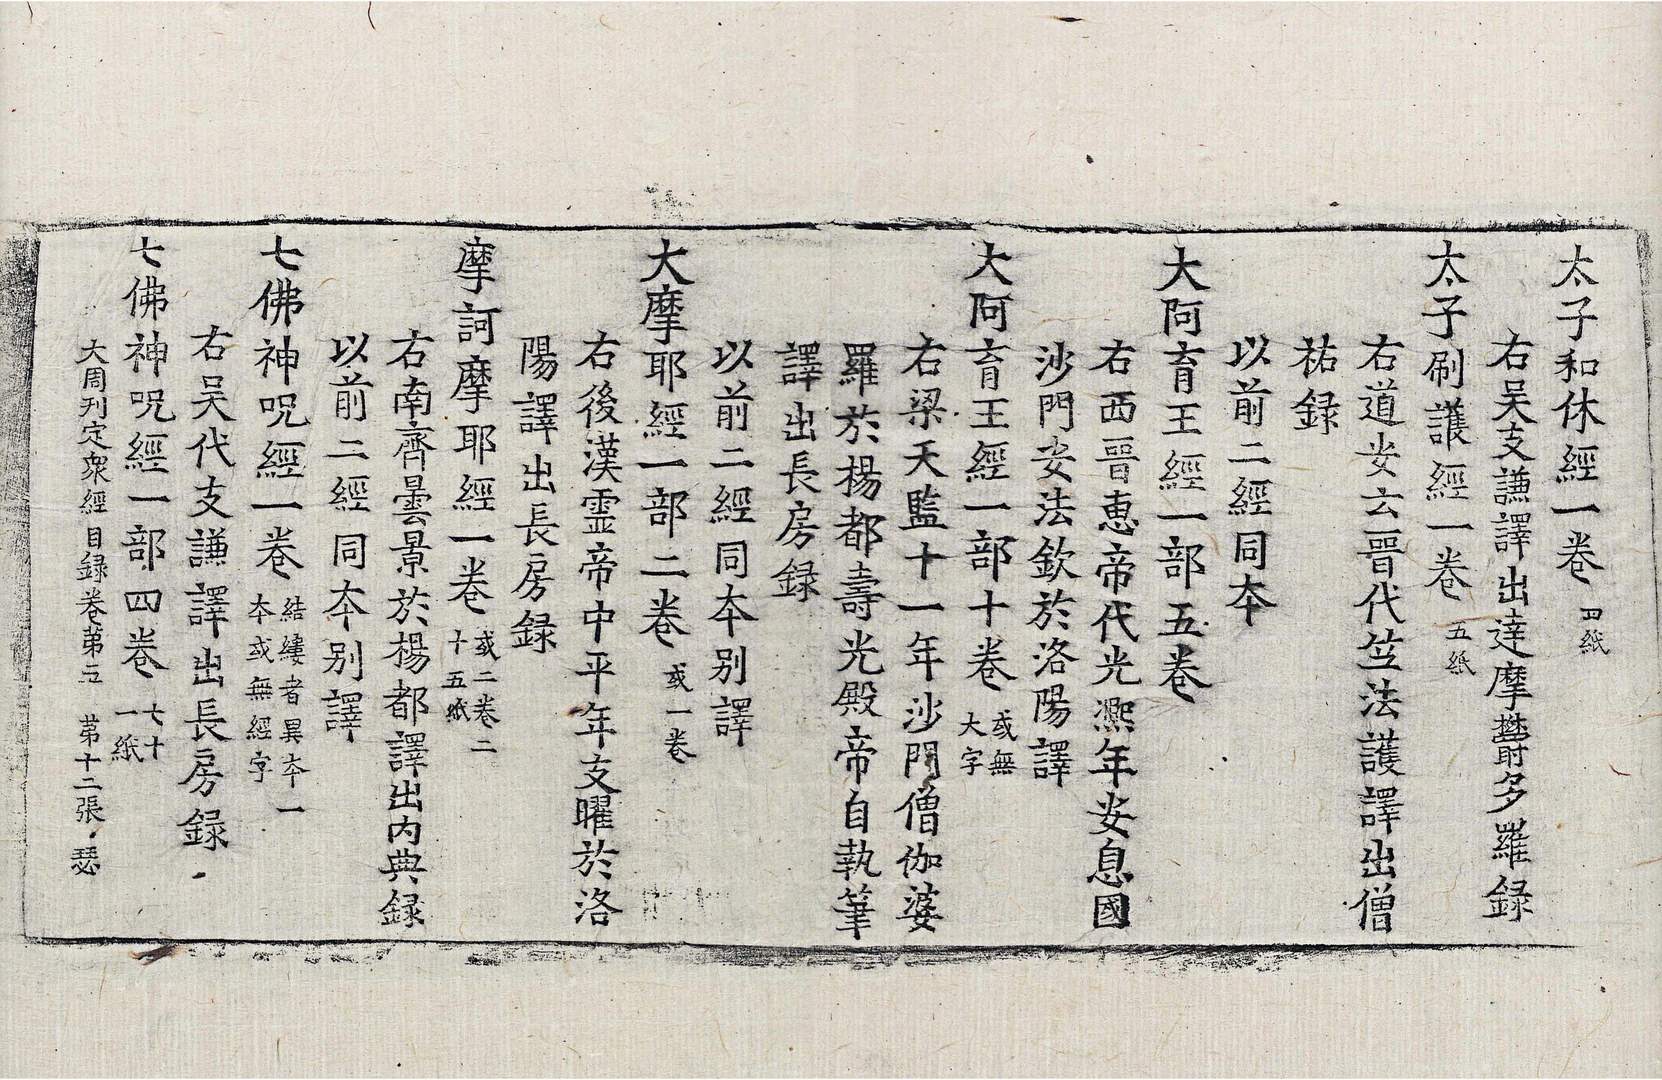 太子和休經一卷 四紙
右吴支謙譯出達摩欝多羅録
太子刷護經一卷 五紙
右道安云晋代竺法護譯出僧
祐録
以前二經同夲
大阿育王經一部五卷
右西晋恵帝代光熈年安息國
沙門安法欽於洛陽譯
大阿育王經一部十卷 或無大字
右梁天監十一年沙門僧伽婆
羅於楊都壽光殿帝自執筆
譯出長房録
以前二經同夲别譯
大摩耶經一部二卷 或一卷
右後漢靈帝中平年支曜於洛
陽譯出長房録
摩訶摩耶經一卷 或二卷二十五紙
右南齊曇景於楊都譯出内典録
以前二經同夲别譯
七佛神呪經一卷 結縷者異夲一夲或無經字
右吴代支謙譯出長房録
七佛神呪經一部四卷 七十一紙
大周刊定衆經目録卷第二 第十二張 瑟